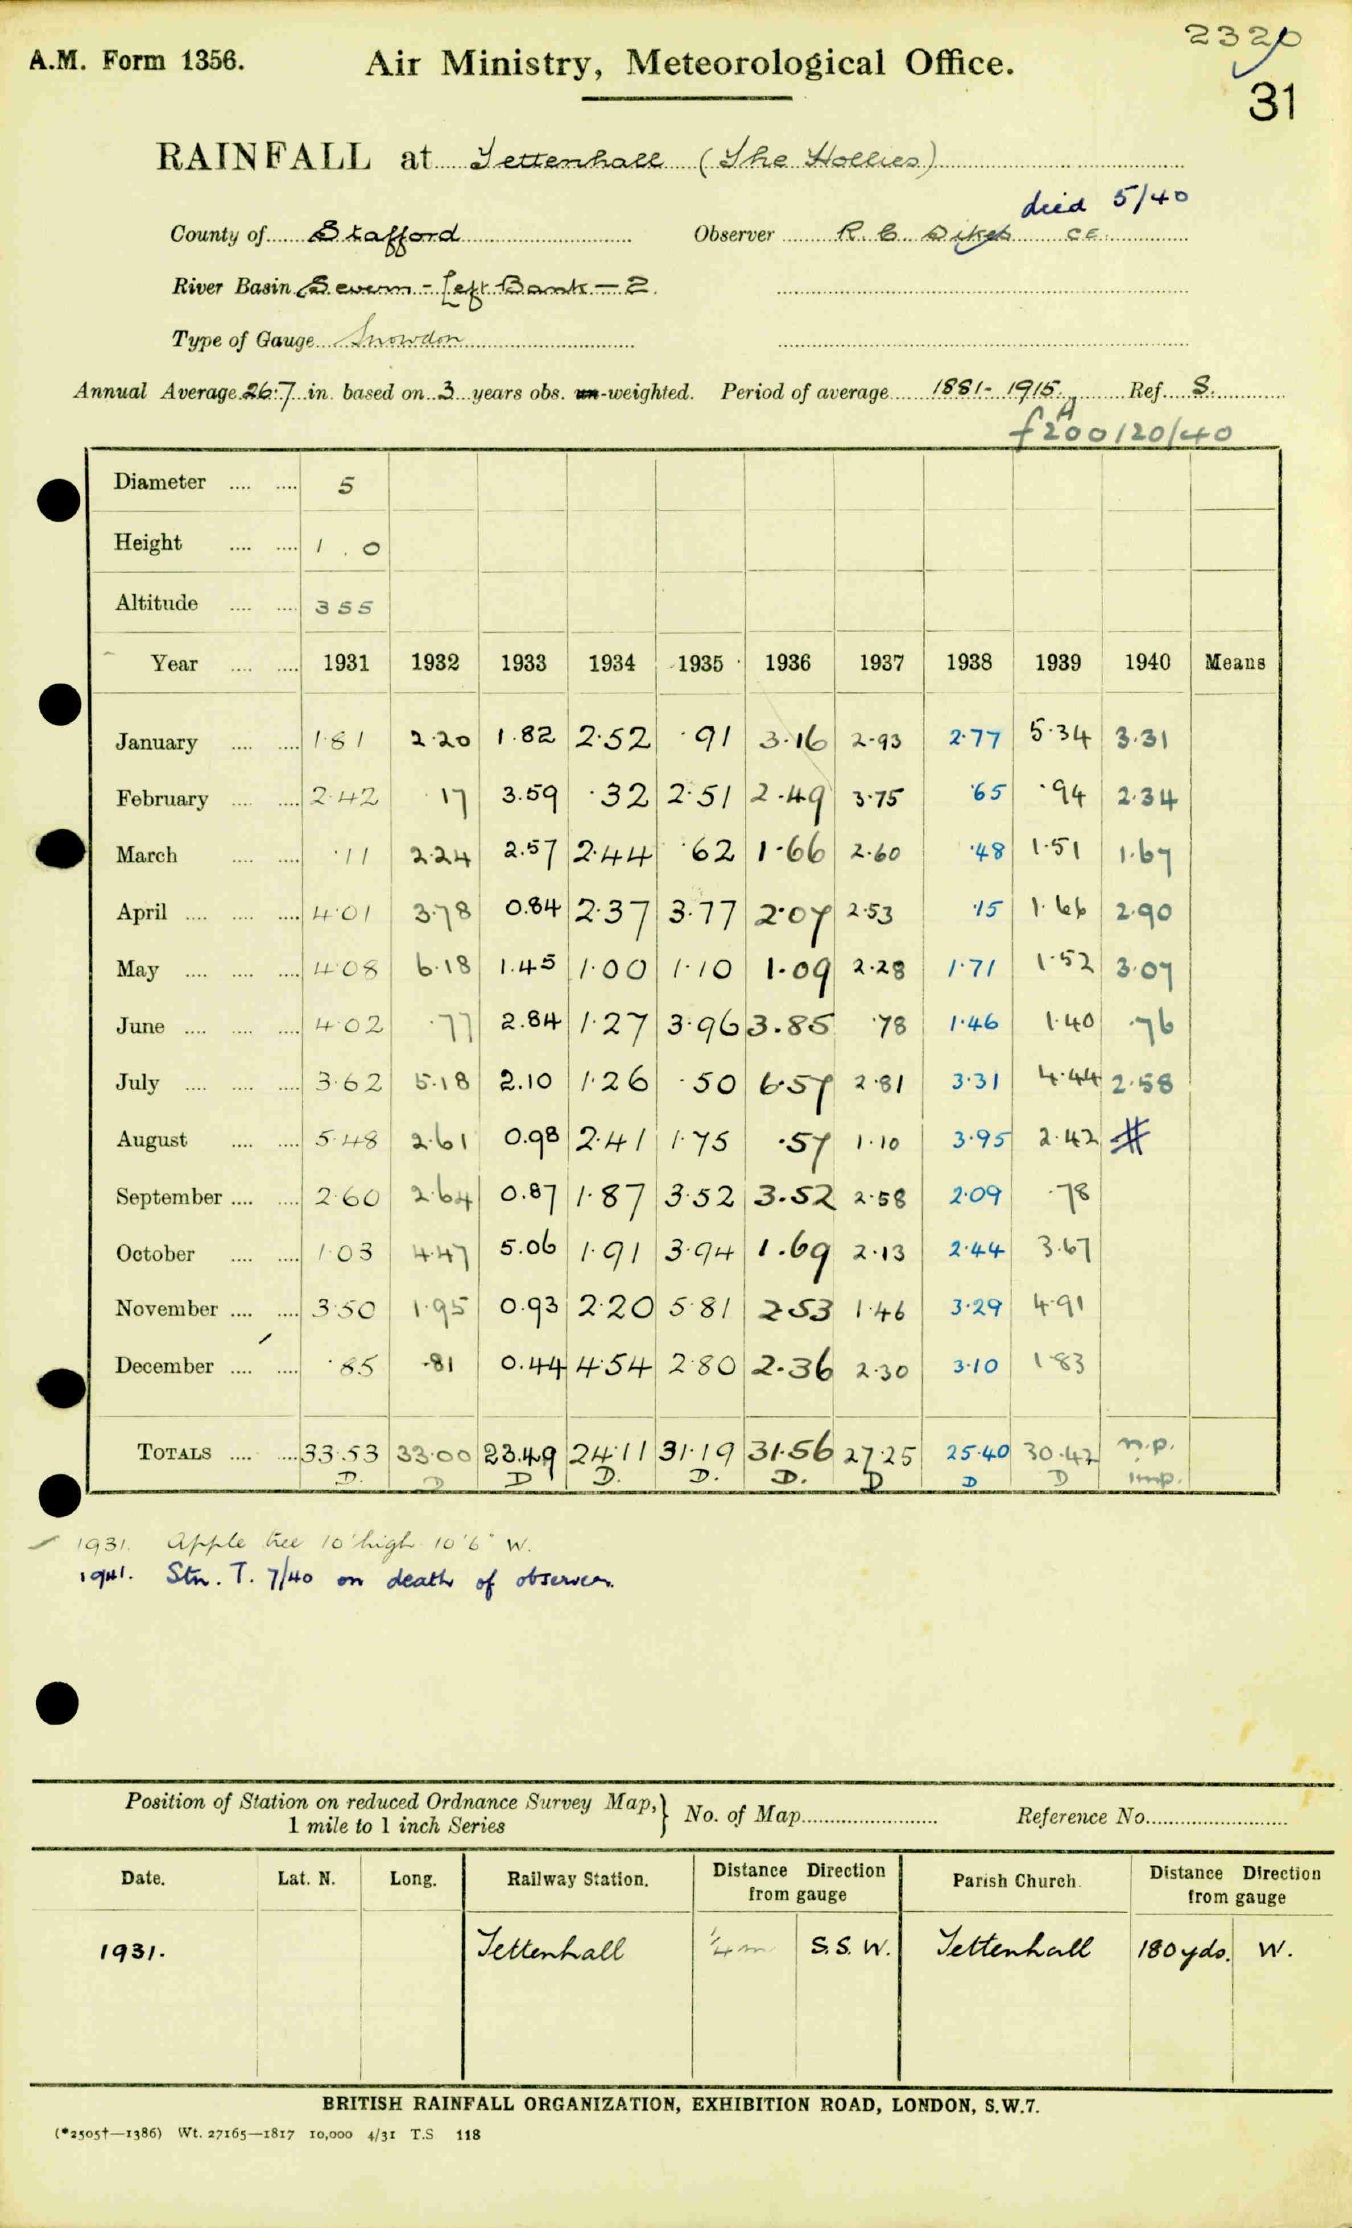 2320
A.M. Form 1356. Air Ministry, Meteorological Office.
31
RAINFALL at Tettenhall (The Hollies)
died 5/40
County of Stafford Observer R. C. Dikes CE.
River Basin Severn - Left Bank - 2.
Type of Gauge Snowdon
Annual Average 26.7 in. based on 3 years obs. un-weighted. Period of average 1881-1915. Ref. S.
A
f200120/40
Diameter .... .... 5
Height .... .... 1 . 0
Altitude .... .... 355
Year .... .... 1931 1932 1933 1934 1935 1936 1937 1938 1939 1940 Means
January .... .... 1.81 2.20 1.82 2.52 .91 3.16 2.93 2.77 5.34 3.31
February .... .... 2.42 .17 3.59 .32 2.51 2.49 3.75 .65 .94 2.34
March .... .... .11 2.24 2.57 2.44 .62 1.66 2.60 .48 1.51 1.67
April .... .... .... 4.01 3.78 0.84 2.37 3.77 2.07 2.53 .15 1.66 2.90
May .... .... .... 4.08 6.18 1.45 1.00 1.10 1.09 2.28 1.71 1.52 3.07
June .... .... .... 4.02 .77 2.84 1.27 3.96 3.85 .78 1.46 1.40 .76
July .... .... .... 3.62 5.18 2.10 1.26 .50 6.57 2.81 3.31 4.44 2.58
August .... .... 5.48 2.61 0.98 2.41 1.75 .57 1.10 3.95 2.42 #
September .... .... 2.60 2.64 0.87 1.87 3.52 3.52 2.58 2.09 .78
October .... .... 1.03 4.47 5.06 1.91 3.94 1.69 2.13 2.44 3.67
November .... .... 3.50 1.95 0.93 2.20 5.81 2.53 1.46 3.29 4.91
December .... .... .85 .81 0.44 4.54 2.80 2.36 2.30 3.10 1.83
TOTALS .... .... 33.53 33.00 23.49 24.11 31.19 31.56 27.25 25.40 30.42 n.p.
D. D D D. D. D. D D D imp.
1931. Apple tree 10' high 10'6" W.
1941. Stn. T. 7/40 on death of observer.
Position of Station on reduced Ordnance Survey Map, } No. of Map Reference No.
1 mile to 1 inch Series
Date. Lat. N. Long. Railway Station. Distance Direction from gauge Parish Church. Distance Direction from gauge
1931. Tettenhall 1/4 m S.S.W. Tettenhall 180 yds. W.
BRITISH RAINFALL ORGANIZATION, EXHIBITION ROAD, LONDON, S.W.7.
(*2505†—1386) Wt. 27165—1817 10,000 4/31 T.S 118